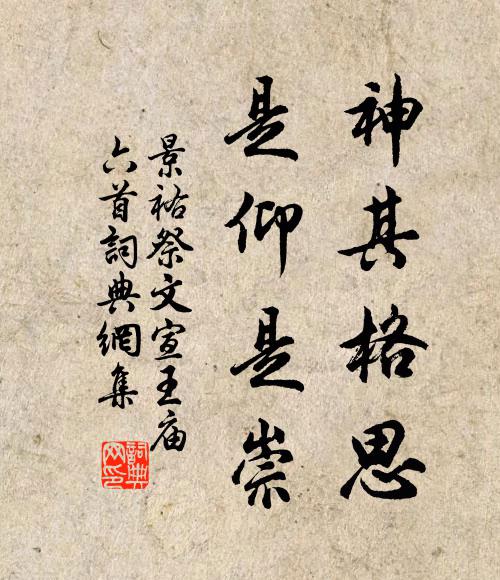 神其格思
是仰是崇
景祐祭文宣王庙
六首詞典網集
詞典网印